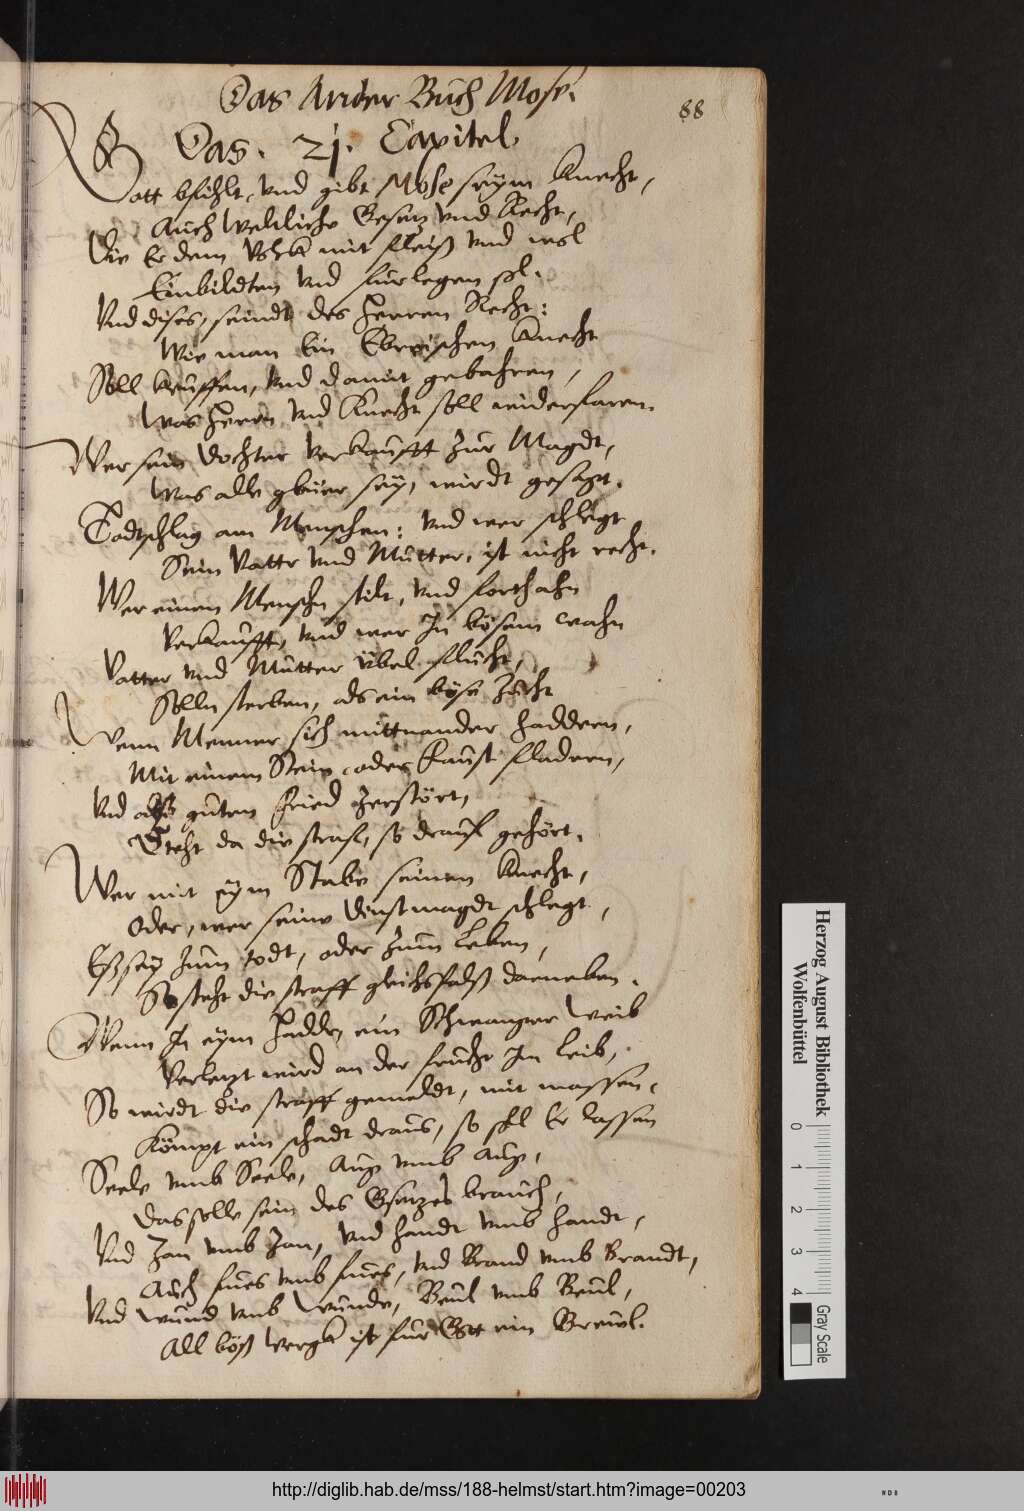 Das Ander Buch Mose.
88
Das. 21. Capitel.
Gott bfihlt, vnd gibt Mose seym Knecht,
Auch Weltliche Gesatz vnd Recht,
Die Er dem Volck mit fleiß vnd wol
Einbildten vnd furlegen sol.
Vnd dises, seindt des Herren Recht:
Wie man Ein Ebreischen Knecht
Soll kauffen, vnd damit gebahren,
Was Herrn vnd Knecht soll widerfaren.
Wer sein Dochter verkaufft zur Magdt,
Was alls gbüer sey, wirdt gesagt.
Todtschlag am Menschen: vnd wer schlegt
Sein Vattr vnd Mutter, ist nicht recht.
Wer einen Menschn stilt, vnd forthahn
Verkaufft, vnd wer In bösem wahn
Vatter vnd Mutter übel flucht,
Solln sterben, als ein böse Zucht
Wenn Menner sich mittnander haddern,
Mit einem Stein oder Faust fladern,
Vnd also guten Fried zerstört,
Steht da die straf, so drauf gehört.
Wer mit eym Stabe seinen Knecht,
Oder, wer seine Dinstmagdt schlegt,
Eß sey zum todt, oder zum Leben,
So steht die straff gleichsfalß darneben.
Wenn In eym Hadder ein Schwanger Weib
Verletzt wird an der frucht Im Leib,
So wirdt die straff gemeldt, mit massen,
Kömpt ein schadt draus, so sol Er lassen
Seele vmb Seele, Aug vmb Aug,
Das solle sein des Gsatzes brauch,
Vnd Zan vmb Zan, vnd Handt vmb Handt,
Auch fues vmb fues, vnd Brand vmb Brandt,
Vnd Wund vmb Wunde, Beul vmb Beul,
All böß Werck ist fur Gott ein Greuel.
Herzog August Bibliothek
Wolfenbüttel
0 1 2 3 4
Gray Scale
http://diglib.hab.de/mss/188-helmst/start.htm?image=00203